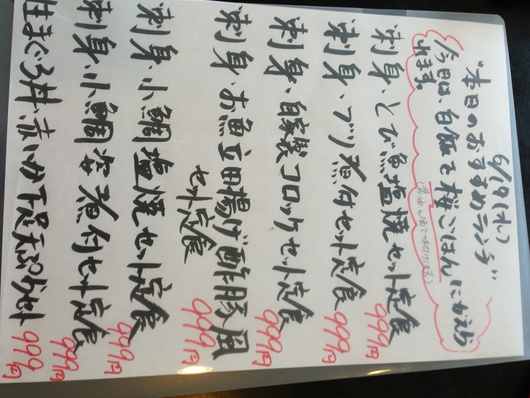 6/9(水)
本日のおすすめランチ
今日は、白飯を桜ごはんにかえられます
刺身、とび魚塩焼セット定食 999円
刺身 ブリ煮付セット定食 999円
刺身、自家製コロッケセット定食 999円
刺身 お魚立田揚げ酢豚風セット定食 999円
刺身 小鯛塩焼セット定食 999円
刺身 小鯛姿煮付セット定食 999円
生まぐろ丼、赤いか下足天ぷらセット 999円